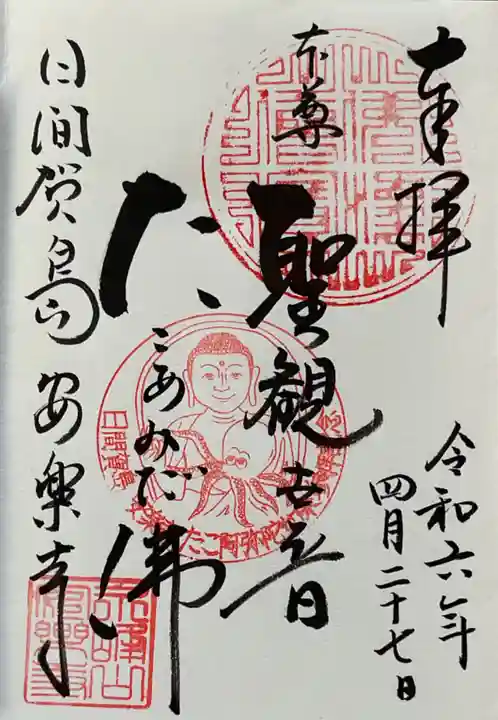 奉拝
令和六年
四月二十七日
本尊
聖観世音
たこあみだ佛
日間賀島 安楽寺
日間賀島
たこ阿弥陀